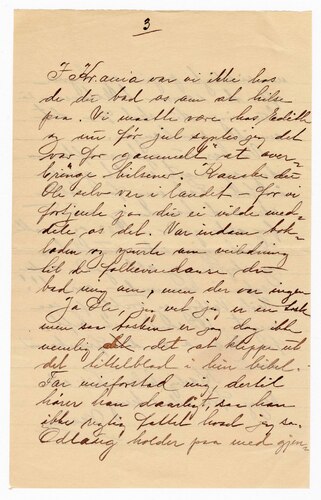 3
I Kr.ania var vi ikke hos
de du bad os om at hilse
paa. Vi maatte være hos Edith
og nu før jul syntes jeg det
var for gammelt at over-
bringe hilsener. Kanske du
Ole selv var i landet – for vi
fortjente jo du ei vilde med-
dele os det. Var indom bok-
laden og spurte om veiledning
til de folkevisedanse du
bad mig om, men der var ingen
Ja Ole, jeg vet jeg er en
men saa
venlig det at klippe ut
det tittelblad i hin bibel.
Far misforstod mig, dertil
hører han daarligt, saa han
ikke rigtig fattet hvad jeg sa.
Odlaug holder paa med gjen-